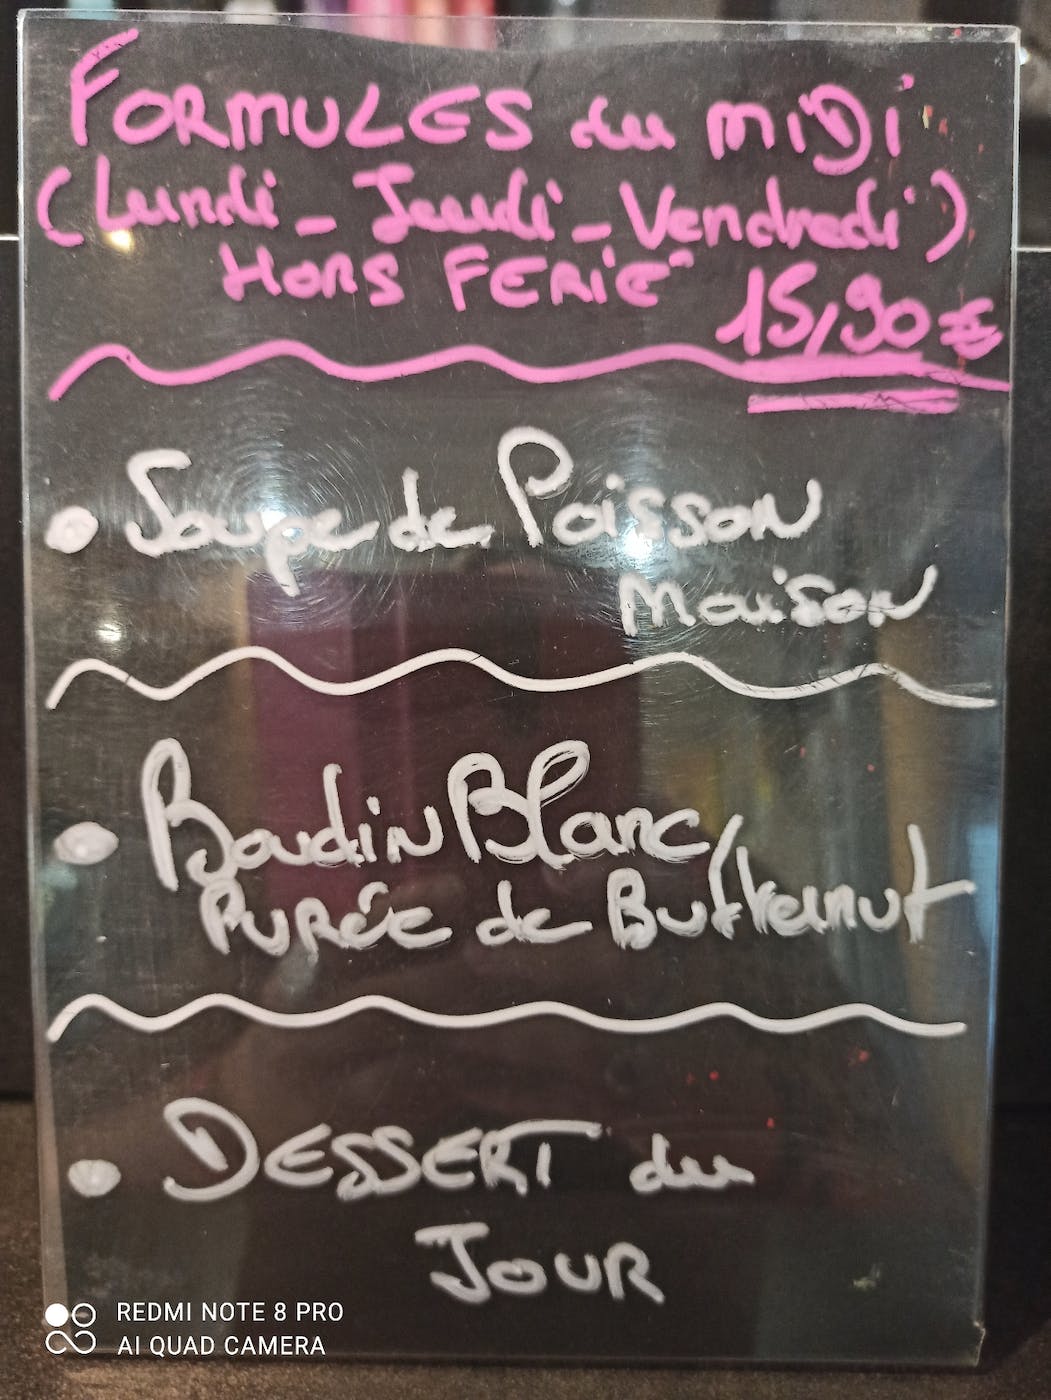 FORMULES du MIDI
(Lundi - Jeudi - Vendredi)
HORS FERIE 15,90€
• Soupe de Poisson
Maison
• Boudin Blanc/
PURÉE de Butternut
• DESSERT du
JOUR
REDMI NOTE 8 PRO
AI QUAD CAMERA